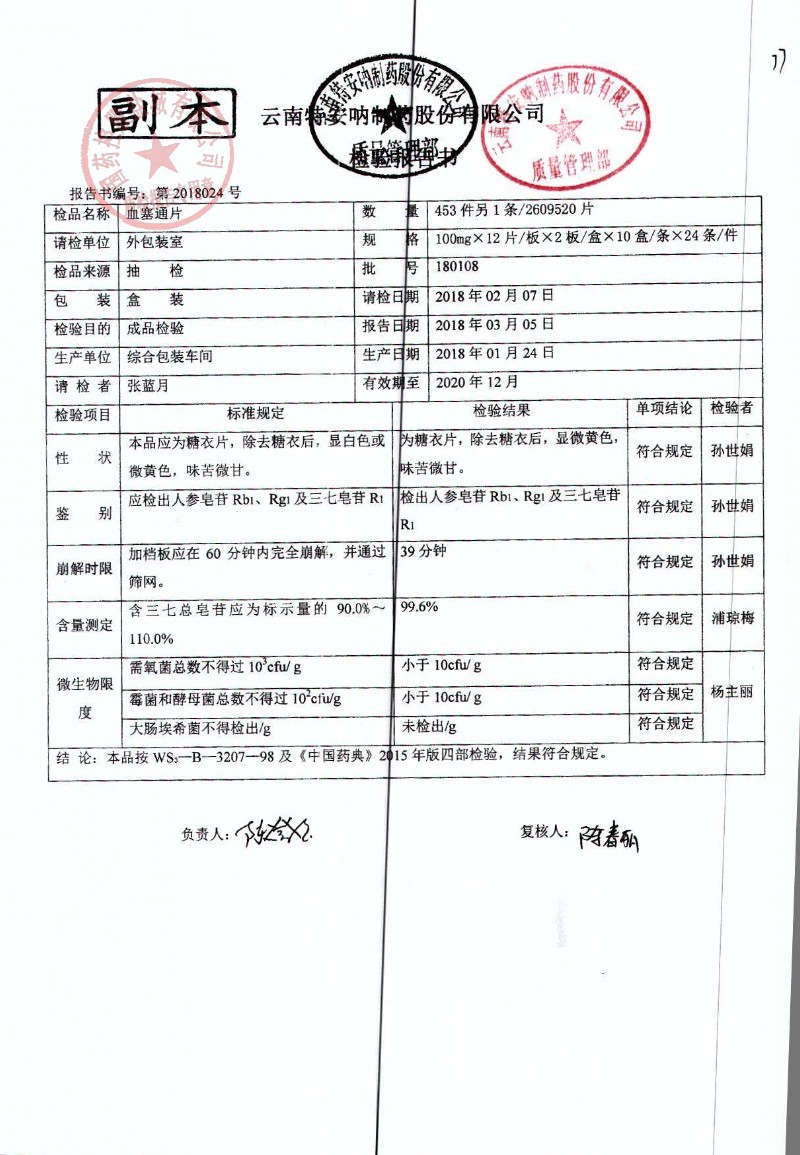 17
副本
云南特安呐制药股份有限公司
检验报告书
云南特安呐制药股份有限公司
质量管理部
云南特安呐制药股份有限公司
质量管理部
报告书编号：第 2018024 号
检品名称 血塞通片 数 量 453 件另 1 条/2609520 片
请检单位 外包装室 规 格 100mg×12 片/板×2 板/盒×10 盒/条×24 条/件
检品来源 抽 检 批 号 180108
包 装 盒 装 请检日期 2018 年 02 月 07 日
检验目的 成品检验 报告日期 2018 年 03 月 05 日
生产单位 综合包装车间 生产日期 2018 年 01 月 24 日
请 检 者 张蓝月 有效期至 2020 年 12 月
检验项目 标准规定 检验结果 单项结论 检验者
性 状 本品应为糖衣片，除去糖衣后，显白色或 为糖衣片，除去糖衣后，显微黄色， 符合规定 孙世娟
微黄色，味苦微甘。 味苦微甘。
鉴 别 应检出人参皂苷 Rb₁、Rg₁ 及三七皂苷 R₁ 检出人参皂苷 Rb₁、Rg₁ 及三七皂苷 符合规定 孙世娟
R₁
崩解时限 加档板应在 60 分钟内完全崩解，并通过 39 分钟 符合规定 孙世娟
筛网。
含量测定 含三七总皂苷应为标示量的 90.0%～ 99.6% 符合规定 浦琼梅
110.0%
微生物限 需氧菌总数不得过 10³cfu/ g 小于 10cfu/ g 符合规定
度 霉菌和酵母菌总数不得过 10²cfu/g 小于 10cfu/ g 符合规定 杨主丽
大肠埃希菌不得检出/g 未检出/g 符合规定
结 论：本品按 WS₃—B—3207—98 及《中国药典》2015 年版四部检验，结果符合规定。
负责人： 复核人：陈春丽